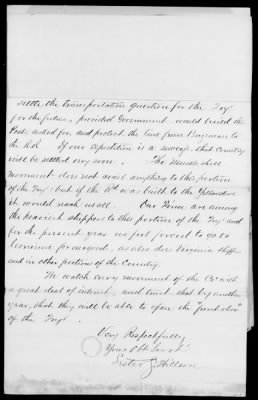 settle the transportation question for the Ty
for the future, provided Government would build the
Posts asked for, and protect the line from Bozeman to
the R.R. If our expedition is a success, that Country
will be settled very soon. The
movement does not avail anything to this portion
of the Ty: but if the Rd was built to the Yellowstone
it would reach us all. Our Firm are among
the heaviest shippers to this portion of the Ty: and
for the present year we feel forced to go to
Corinne for our freight, as also do Virginia shippers
and in other portion of the Country.
We watch every movement of the Co with a
great deal of interest, and trust, that by another
year, that they will be able to open the "front door"
of the Ty.
Very Respectfully
Your Obt Servts